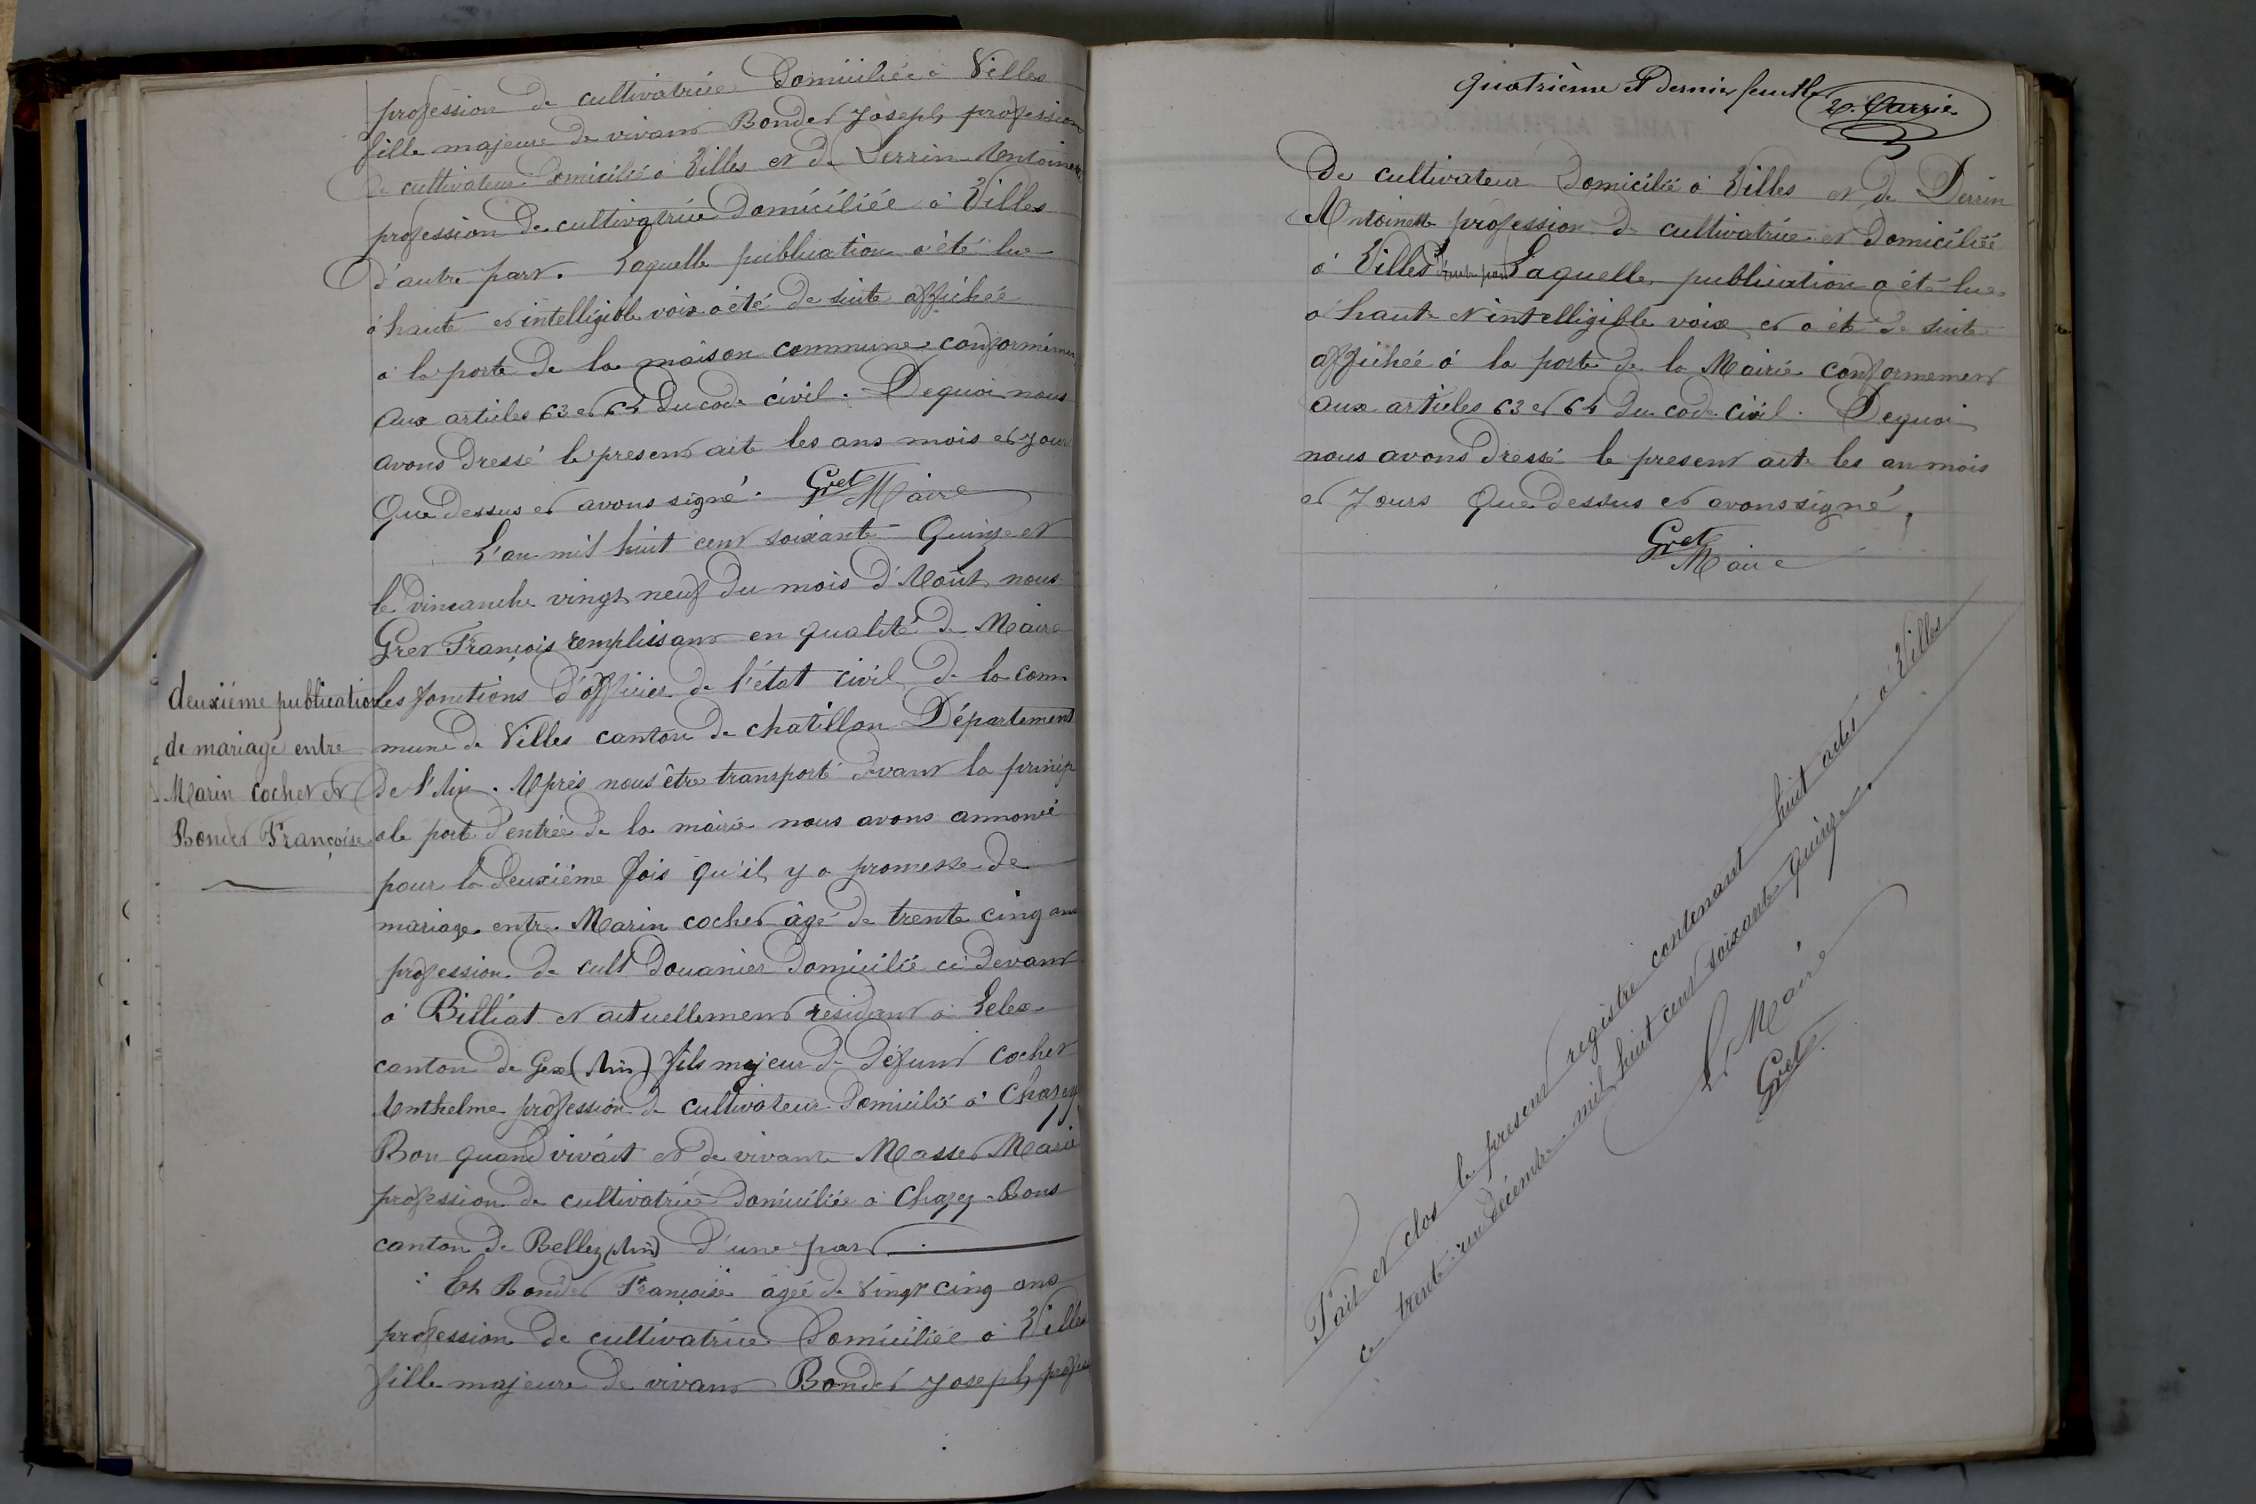 profession de cultivatrice Domiciliée à Villes
fille majeure de vivans Bondet Joseph profession
de cultivateur Domicilié à Villes et de Perrin Antoinette
profession de cultivatrice Domiciliée à Villes
d'autre part. Laquelle publication a été lue
à haute et intelligible voix a été de suite affichée
à la porte de la maison commune conformément
aux articles 63 et 64 du code civil. Dequoi nous
avons dressé le present acte les ans mois et jour
que dessus et avons signé. Gret Maire
L'an mil huit cent soixante Quinze et
le dimanche vingt neuf du mois d'Août nous
Gret François remplissant en qualité de Maire
les fonctions d'officier de l'état civil de la com
mune de Villes canton de chatillon Département
de l'Ain. Après nous être transporté devant la princip
ale porte d'entrée de la mairie nous avons annoncé
pour la deuxième fois qu'il y a promesse de
mariage entre Marin cochet âgé de trente cinq ans
profession de cult Douanier domicilié ci devant
à Billiat et actuellement résidant à Lelex
canton de Gex (Ain) fils majeur de défunt Cochet
Anthelme profession de cultivateur domicilié à Chazey
Bon quand vivait et de vivante Masset Marie
profession de cultivatrice domiciliée à Chazey-Bons
canton de Belley (Ain) d'une part.
Et Bondet Françoise agée de vingt cinq ans
profession de cultivatrice Domiciliée à Villes
fille majeure de vivans Bondet Joseph profession
deuxième publication
de mariage entre
Marin cochet et
Bondet Françoise
quatrième et Dernier feuille
De cultivateur Domicilié à Villes et de Perrin
Antoinette profession de cultivatrice et domiciliée
à Villes d'autre part Laquelle publication a été lue
à haute et intelligible voix et a été de suite
affichée à la porte de la Mairie conformement
aux articles 63 et 64 du code civil. Dequoi
nous avons dressé le present acte les an mois
et Jours que dessus et avons signé.
Gret
Maire
Fait et clos le present registre contenant huit actes à Villes
ce trente-un décembre mil huit cent soixante quinze.
Le Maire
Gret